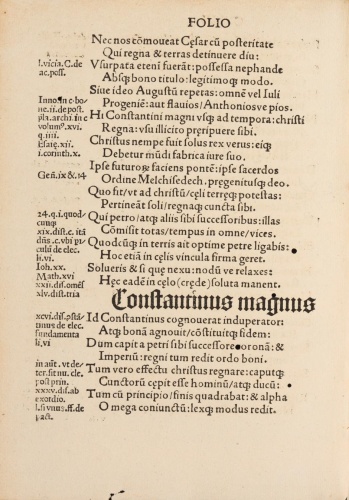 FOLIO
Nec nos cōmoueat Cęsar cū posteritate
Qui regna & terras detinuere diu:
l.vicia. C. de
ac. poss.
Vsurpata etenī fuerāt: possessa nephande
Absq̧ bono titulo: legitimoq̧ modo.
Siue ideo Augustū reperas: omnē vel Iuli
Progeniē: aut flauios/Anthonios ve pios.
Inno. in c. bo-
ne. ii. de post.
pla. archi. in c
volum⁹. xvi.
q. iiii.
Esaię. xii.
i. corinth. x.
Hi Constantini magni vsq̧ ad tempora: christi
Regna: vsu illicito pręripuere sibi.
Christus nempe fuit solus rex verus: eiq̧
Debetur mūdi fabrica iure suo.
Gen̄. ix & .14
Ipse futuroꝝ faciens pontē: ipse sacerdos
Ordine Melchisedech. pręgenitusq̧ deo.
Quo fit/vt ad christū/cęli terręq̧ potestas:
Pertineāt soli/regnaq̧ cuncta sibi.
24. q. i. quod-
cunq̧
xix. dist. c. ita
dn̄s. c. vbi pi-
culū de elec.
li. vi.
Ioh. xx.
Math. xvi
xxii. dis. omēs
xlv. dist. tria
Qui petro/atq̧ aliis sibi successoribus: illas
Cōmisit totas/tempus in omne/vices.
Quodcūq̧ in terris ait optime petre ligabis:
Hoc etiā in cęlis vincula firma geret.
Solueris & si que nexu: nodū ve relaxes:
Hęc eadē in cęlo (crede) soluta manent.
Constantinus magnus
xcvi. dis. pstā-
tinus de elec.
fundamenta
li. vi
Id Constantinus cognouerat induperator:
Atq̧ bonā agnouit/cōstituitq̧ fidem:
Dum capit a petri sibi successore coronā: &
Imperiū: regni tum redit ordo boni.
in aut. vt de-
ter. sit nu. cle.
post prin.
xxxv. dis. ab
exordio.
l. si vnus. ff. de
pact.
Tum vero effectu christus regnare: caputq̧
Cunctorū cępit esse hominū/atq̧ ducū:
Tum cū principio/finis quadrabat: & alpha
O mega coniunctū: lexq̧ modus redit.